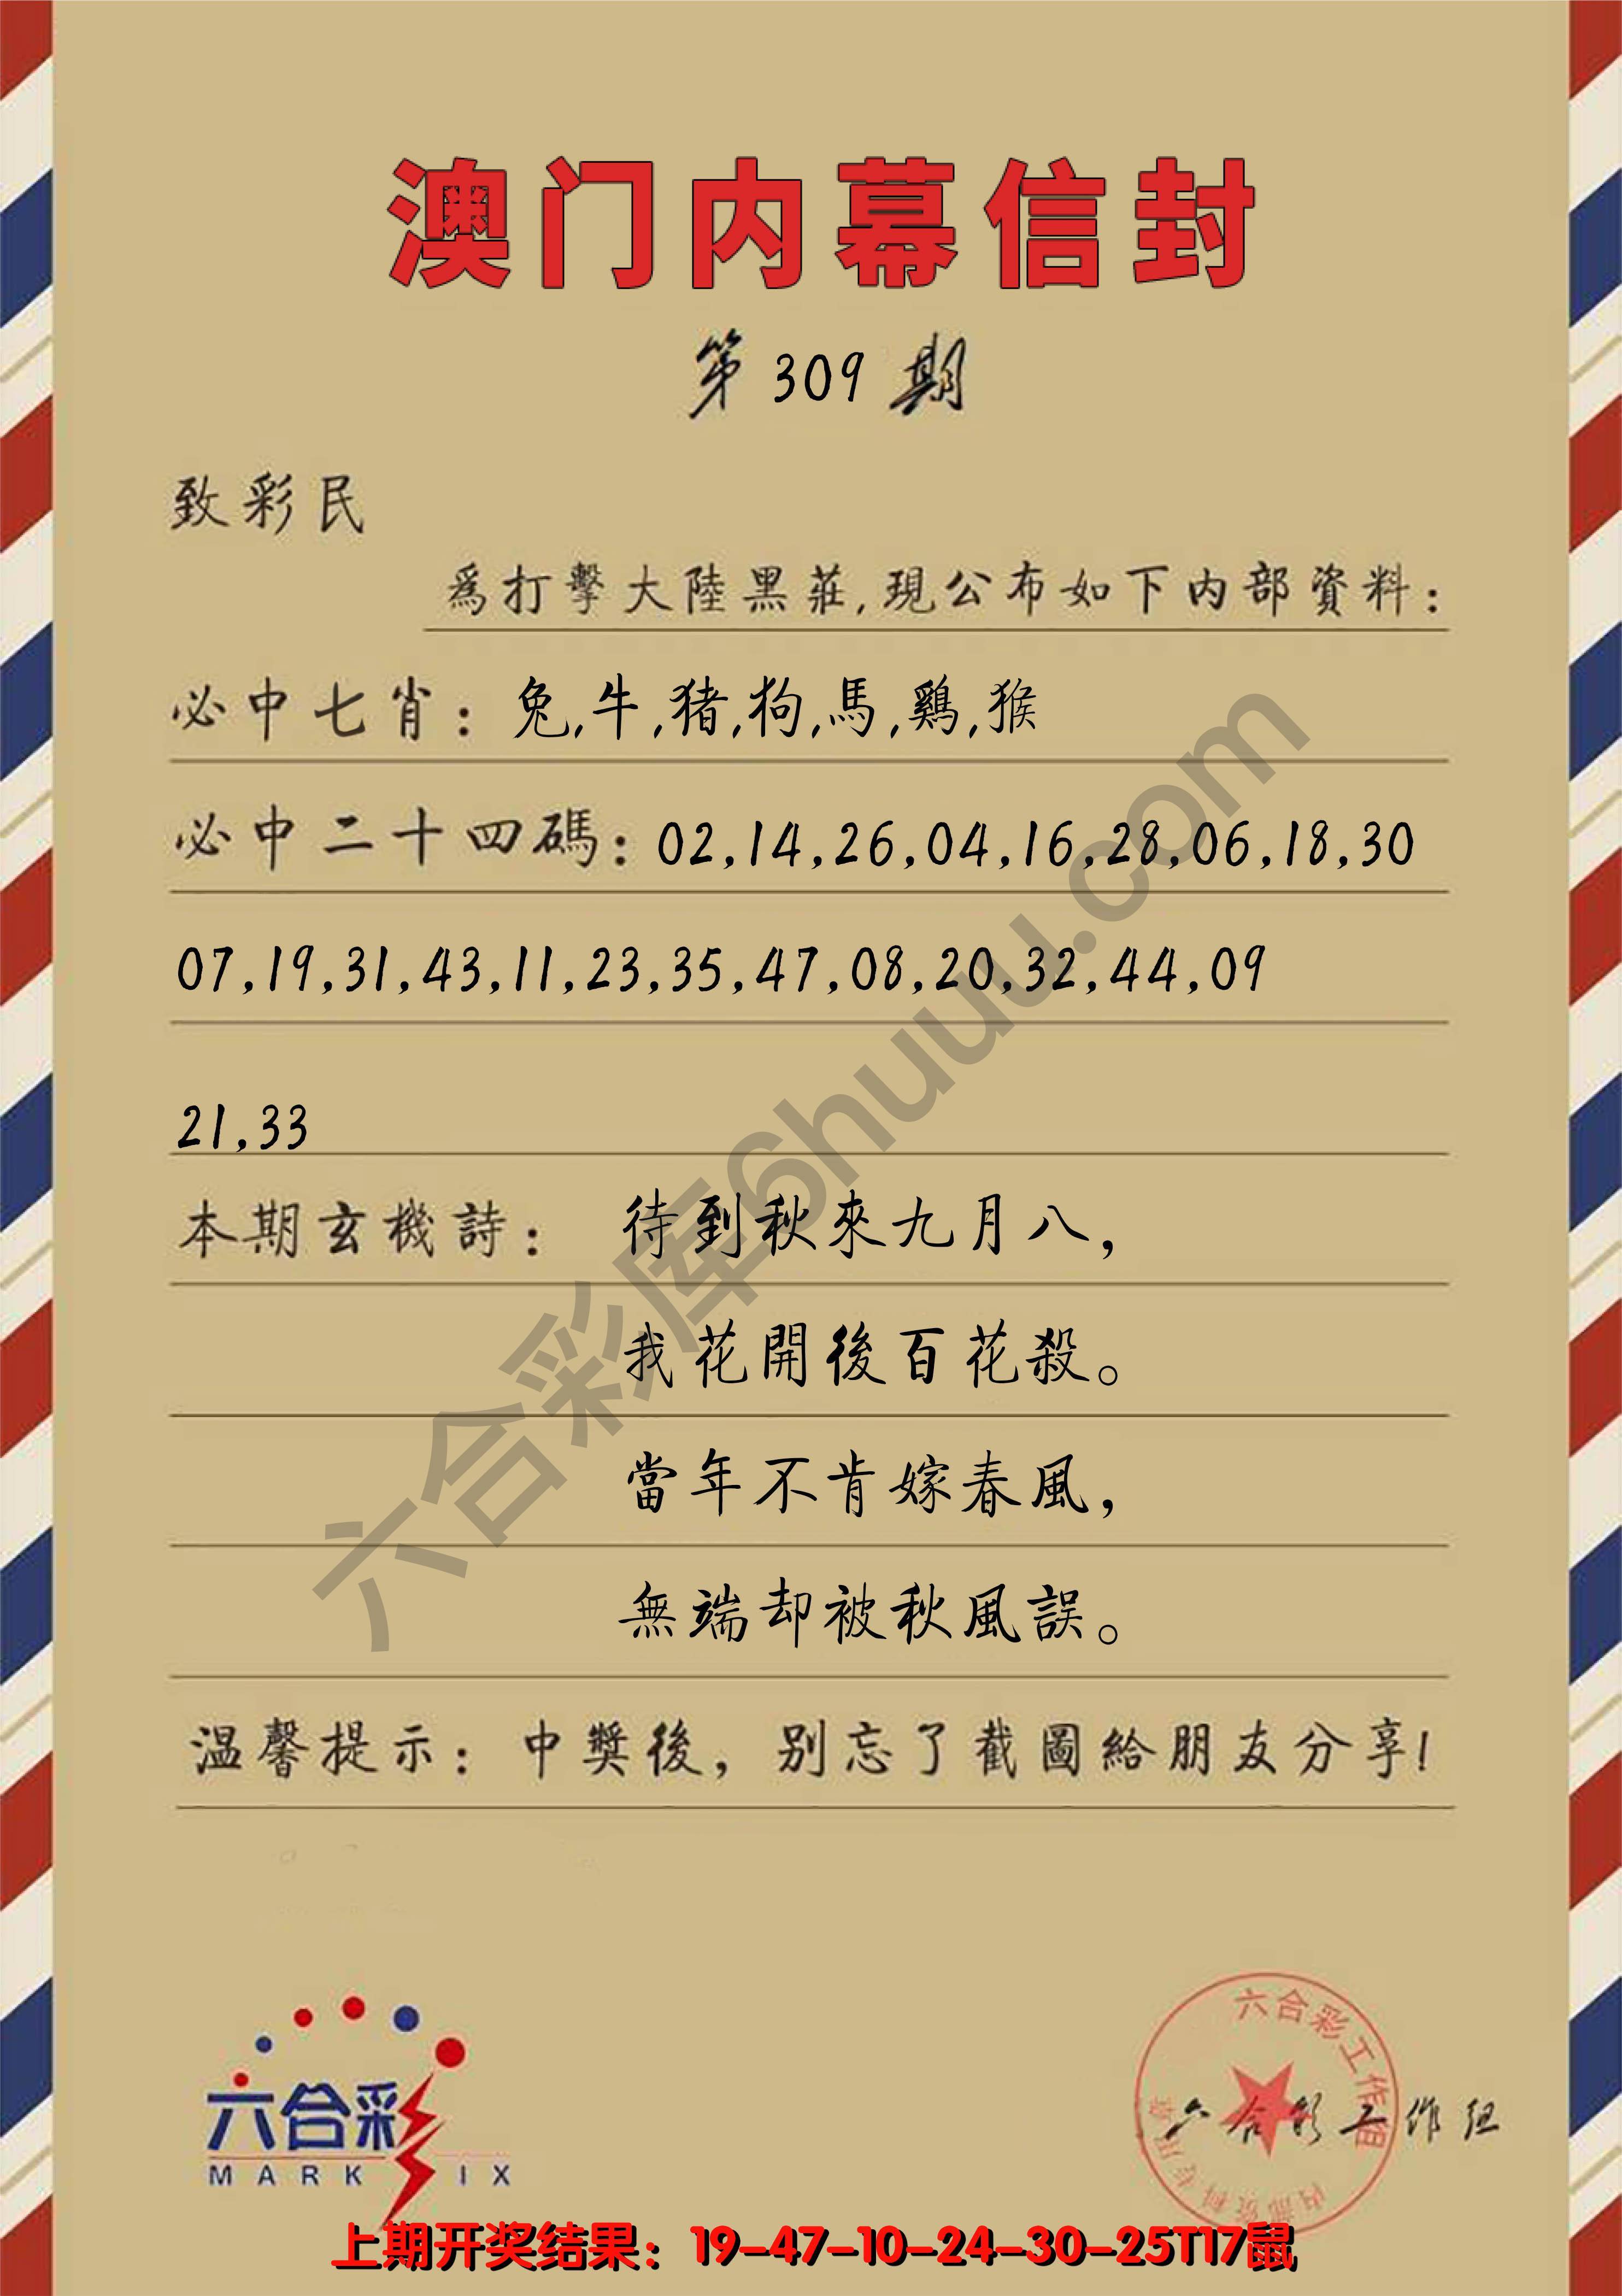 澳门内幕信封
第 309 期
致彩民
爲打擊大陸黑莊,現公布如下内部資料:
必中七肖: 兔,牛,猪,狗,馬,鷄,猴
必中二十四碼: 02,14,26,04,16,28,06,18,30
07,19,31,43,11,23,35,47,08,20,32,44,09
21,33
本期玄機詩: 待到秋來九月八,
我花開後百花殺。
當年不肯嫁春風,
無端却被秋風誤。
温馨提示: 中獎後, 别忘了截圖給朋友分享!
六合彩库6huuu.com
六合彩
MARK IX
六合彩工作组
内部资料专用章
六合彩工作组
上期开奖结果: 19-47-10-24-30-25T17鼠